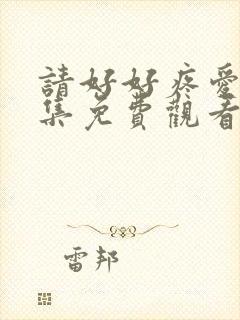 請好好疼愛
集免費觀看
雷邦